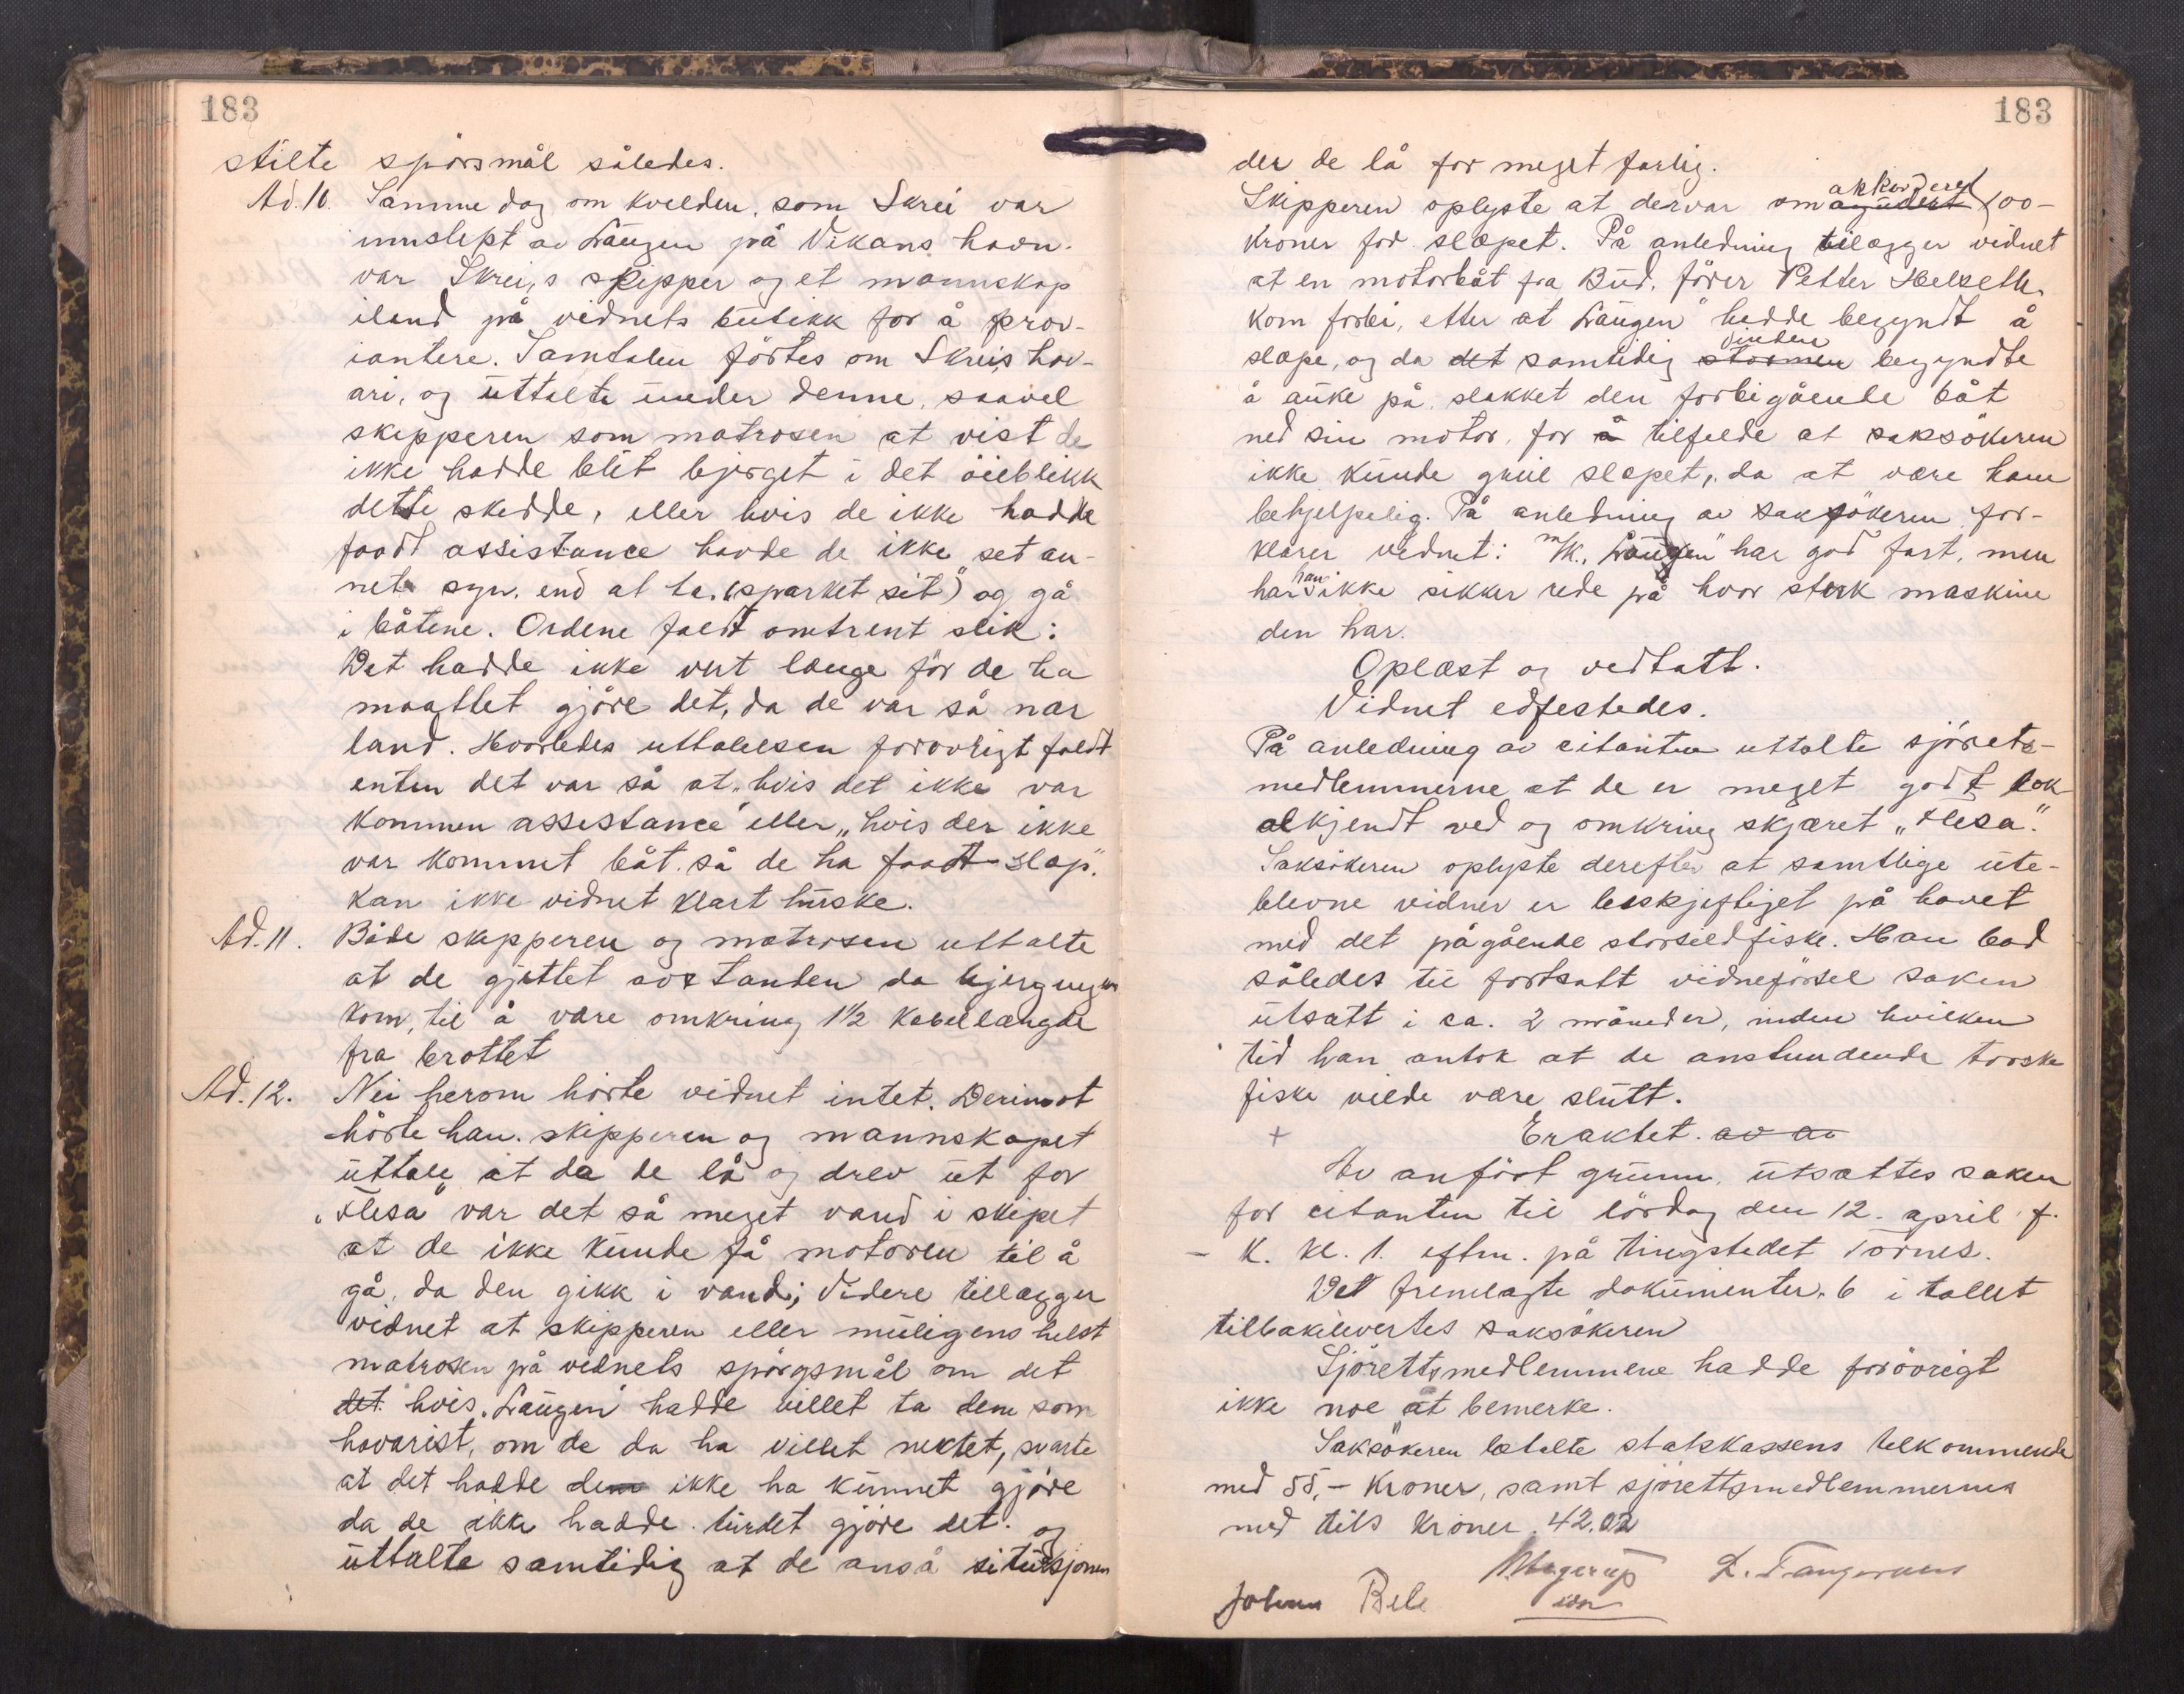 183
stilte spörsmål således.
Ad. 10. Samme dag om kvelden, som Skrei var
innslept av Laugen på Vikans havn.
var Skrei,s skipper og et mannskap
iland på vidnets butikk for å prov-
iantere. Samtalen förtes om Skreis hav-
ari, og uttalte under denne, saavel
skipperen som matrosen at vist de
ikke hadde blit bjerget i det öieblikk
dette skedde, eller hvis de ikke hadde
faadt assistance havde de ikke set an-
net syn, end at ta „sparket sit") og gå
i båtene. Ordene faldt omtrent slik:
Det hadde ikke vert længe för de ha
maattet gjöre det, da de var så nær
land. Hvorledes uttalelsen forøvrigt faldt
enten det var så at „hvis det ikke var
kommen assistance" eller „hvis der ikke
var kommet båt så de ha faadt slæp".
kan ikke vidnet klart huske.
Ad. 11. Både skipperen og matrosen uttalte
at de gjettet avstanden da bjergningen
kom, til å være omkring 1½ kabellængde
fra brottet
Ad. 12. Nei herom hörte vidnet intet. Derimot
hörte han skipperen og mannskapet
uttale at da de lå og drev ut for
„Flesa" var det så meget vand i skipet
at de ikke kunde få motoren til å
gå, da den gikk i vand; Videre tillægger
vidnet at skipperen eller muligens helst
matrosen på vidnets spörgsmål om det
det hvis „Laugen" hadde villet ta dem som
havarist, om de da ha villet nektet, svarte
at det hadde dem ikke ha kunnet gjöre
da de ikke hadde turdet gjöre det. og
uttalte samtidig at de anså situasjonen
183
der de lå for meget farlig.
akkorderet
Skipperen oplyste at dervar om 100-
kroner for slæpet. På anledning tilægger vidnet
at en motorbåt fra Bud, förer Petter Helseth,
kom forbi, etter at „Laugen" hadde begyndt å
vinden
slæpe, og da det samtidig stormen begyndte
å auke på, slakket den forbigående båt
ned sin motor, for å tilfælde at saksökeren
ikke kunde greie slæpet, da at være ham
behjelpelig. På anledning av saksökeren for-
klarer vidnet: m/k. „Laugen" har god fart, men
han
har ikke sikker rede på hvor sterk maskine
den har.
Oplæst og vedtatt.
Vidnet edfestedes.
På anledning av citanten uttalte sjörets-
medlemmerne at de er meget godt lok-
alkjendt ved og omkring skjæret „Flesa".
Saksökeren oplyste derefter at samtlige ute-
blevne vidner er beskjeftiget på havet
med det pågående storsildfiske. Han bad
således til fortsatt vidneförsel saken
utsatt i ca. 2 måneder, inden hvilken
tid han antok at de anstundende torske
fiske vilde være slutt.
+ Eraktet. av av
Av anfört grunn, utsattes saken
for citanten til lördag den 12. april f.
- k. kl. 1. eftm. på tingstedet Tornes.
Det fremlagte dokumenter. 6 i tallet
tilbakelevertes saksökeren
Sjörettsmedlemmene hadde forövrigt
ikke noe at bemerke.
Saksökeren betalte statskassens tilkommende
med 55,- kroner, samt sjörettsmedlemmernes
med tils kroner 42.02
Johan Bele